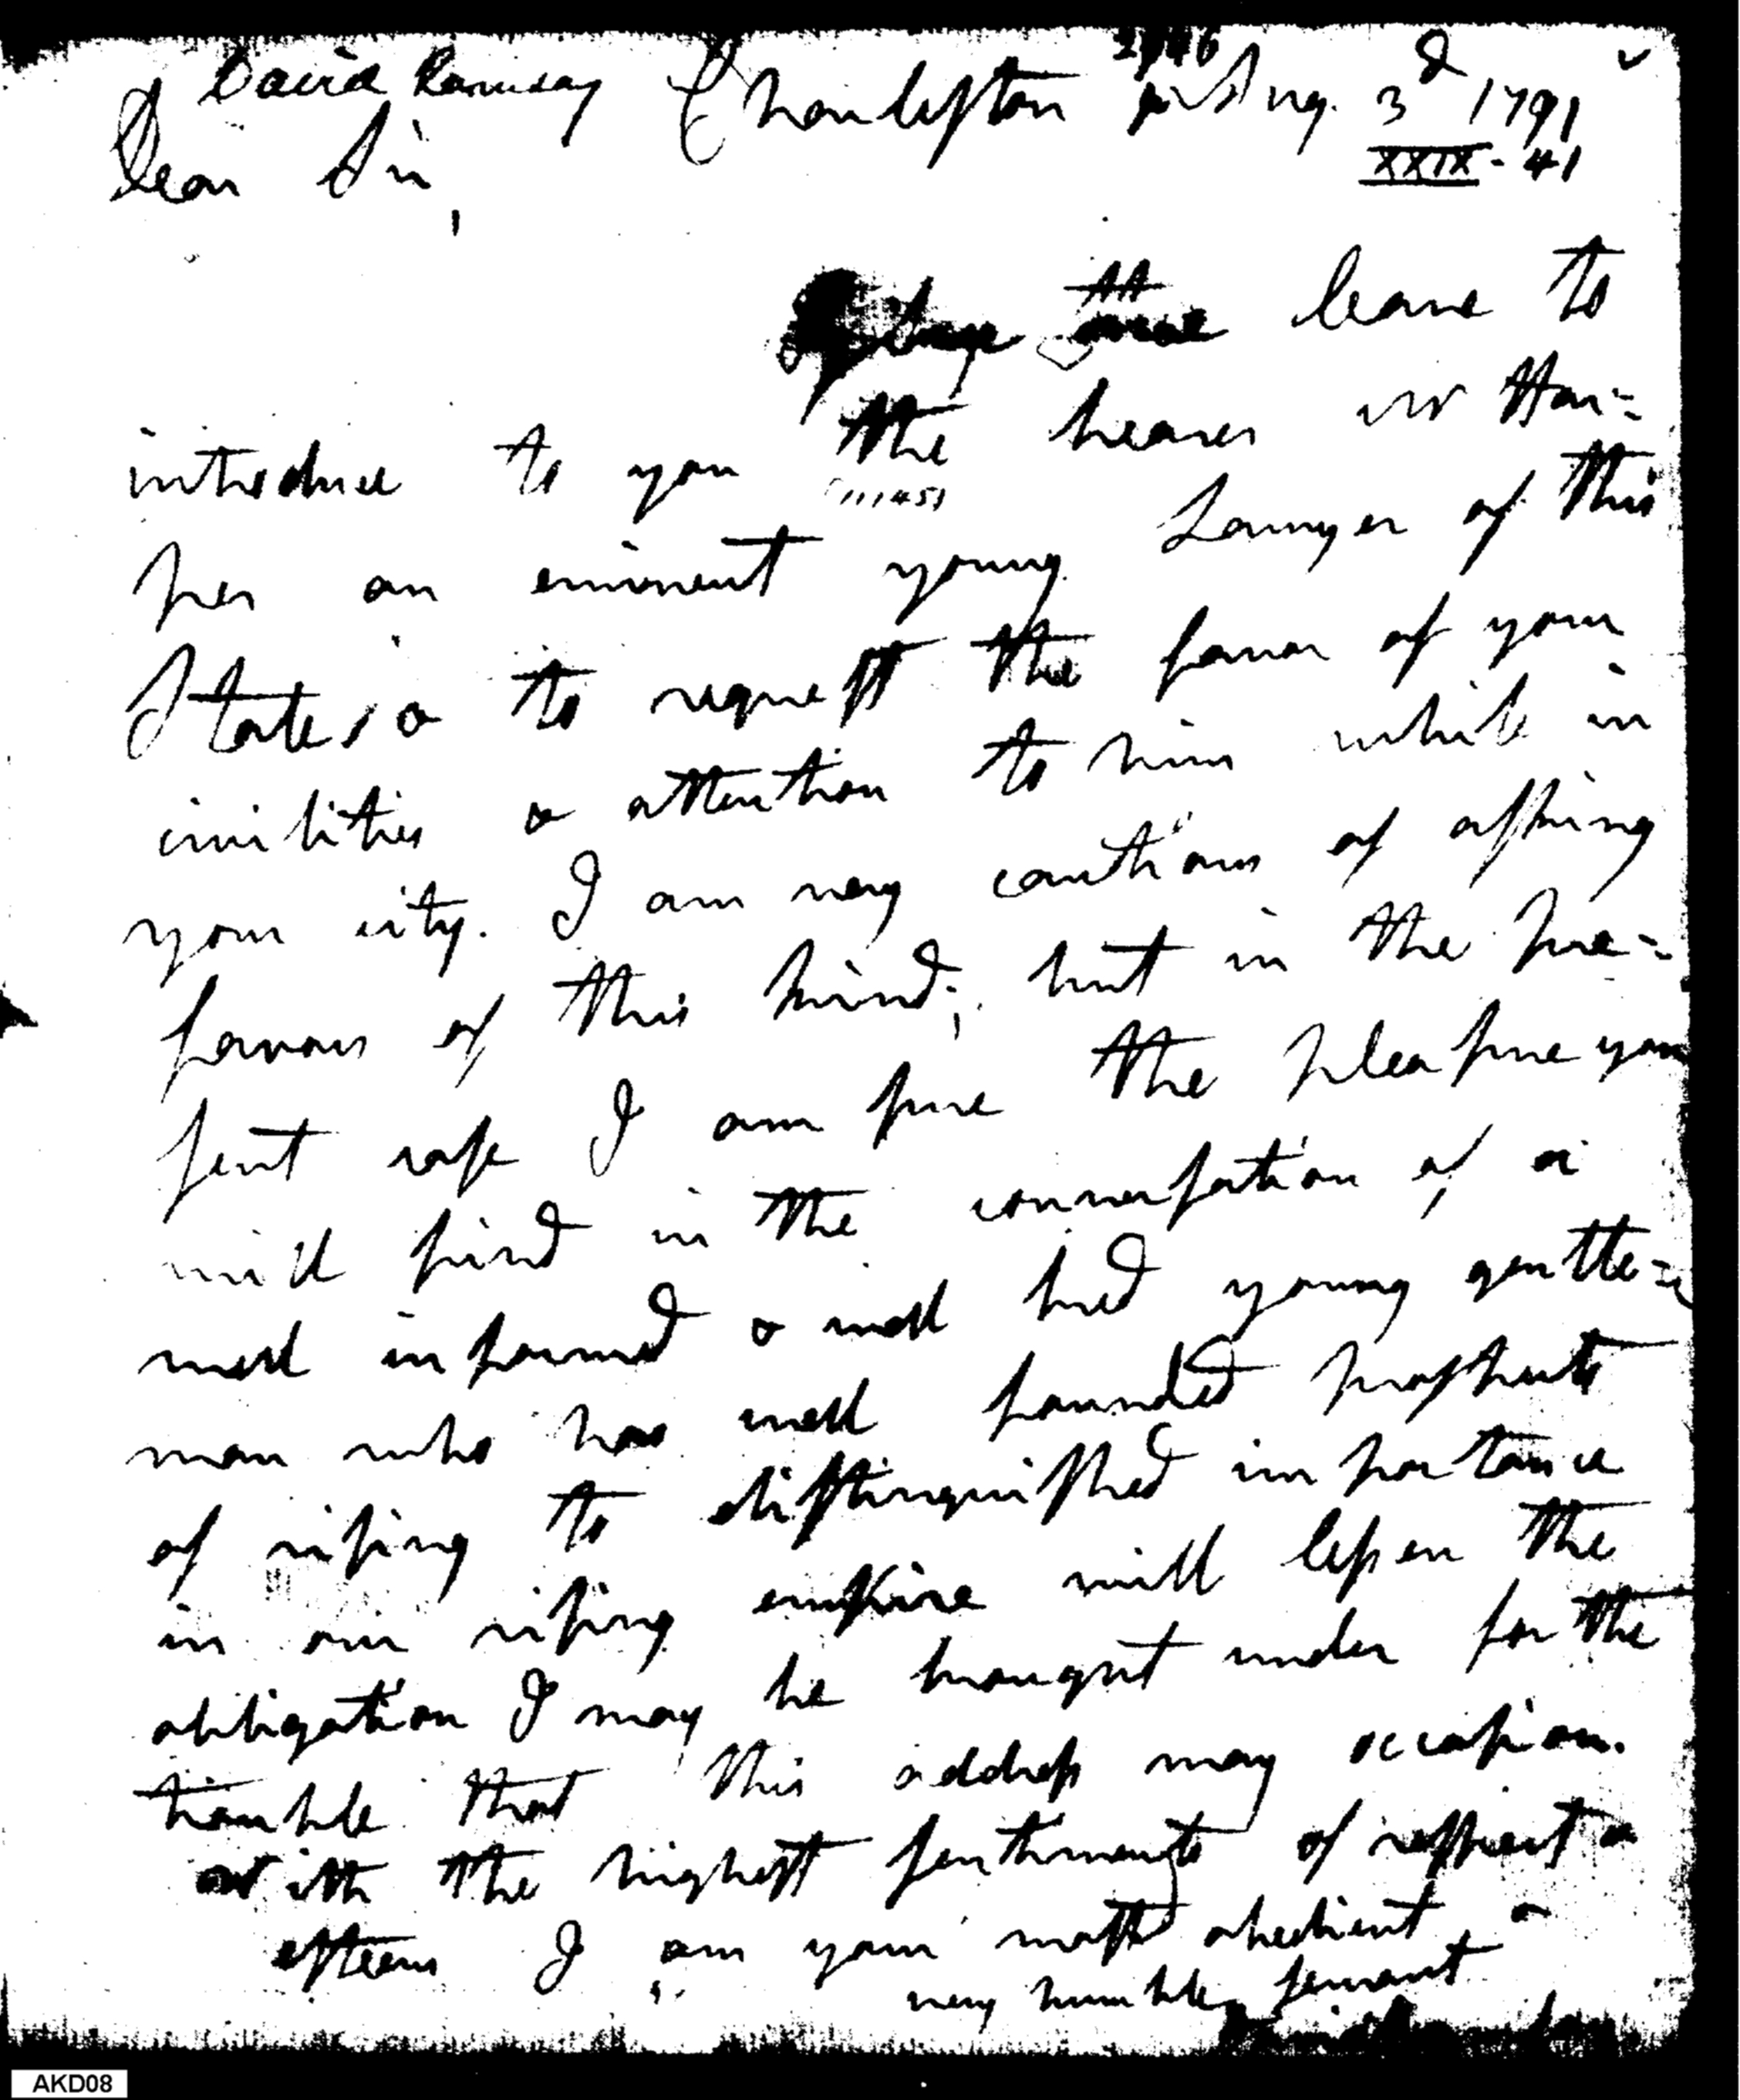 David Ramsay Charleston Aug. 3d 1791
XXIX - 41
Dear Sir,
leave to
introduce to you the bearer Mr Har=
(11145)
per an eminent young Lawyer of this
State, & to request the favor of your
civilities & attention to him while in
your city. I am very cautious of asking
favours of this kind; but in the pre=
sent case I am sure the pleasure you
will find in the conversation of a
well informed & well bred young gentle=
man who has well founded prospects
of rising to distinguished importance
in our rising empire will lessen the
obligation I may be brought under for the
trouble that this address may occasion.
With the highest sentiments of respect &
esteem I am your most obedient &
very humble servant
AKD08